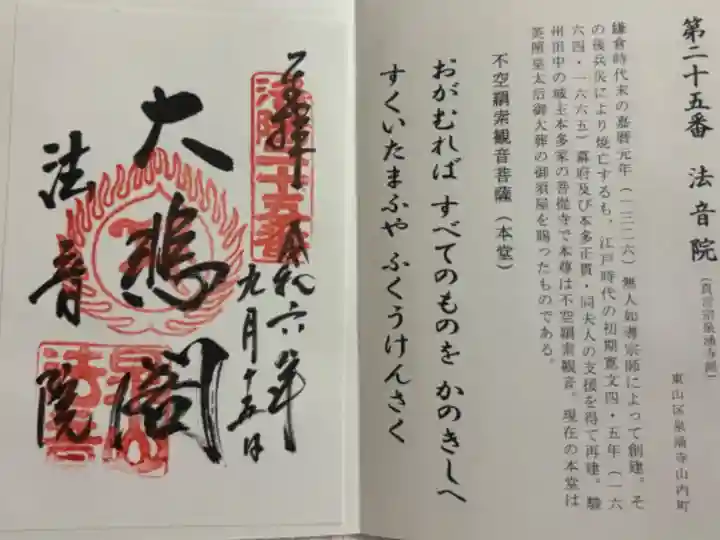 第二十五番 法音院(真言宗泉涌寺派)
東山区泉涌寺山内町
鎌倉時代末の嘉暦元年(一三二六)無人如導宗師によって創建。そ
の後兵災により焼亡するも、江戸時代の初期寛文四・五年(一六
六四・一六六五)幕府及び本多正貫・同夫人の支援を得て再建。駿
州田中の城主本多家の菩提寺で本尊は不空羂索観音。現在の本堂は
英照皇太后御大葬の御須屋を賜ったものである。
不空羂索観音菩薩(本堂)
おがむれば すべてのものを かのきしへ
すくいたまふや ふくうけんさく
奉拝
洛陽二十五番
令和六年
九月十五日
大悲閣
法音院